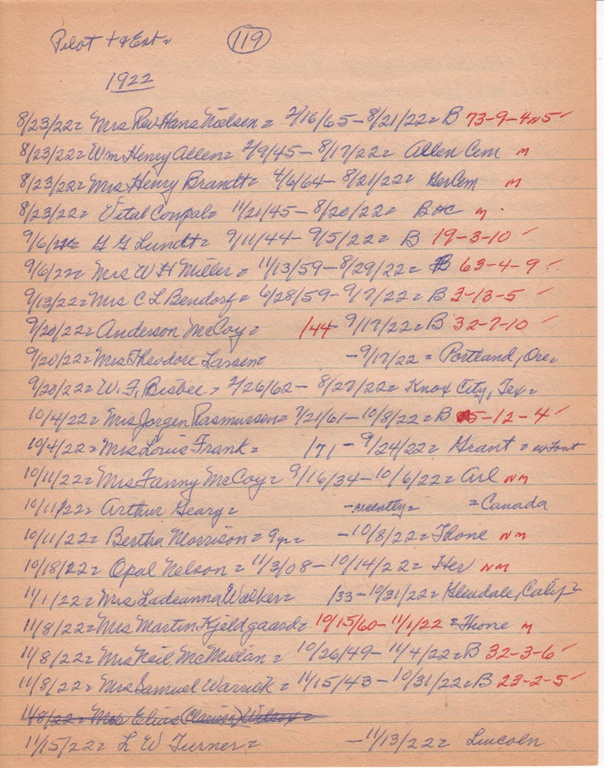 Pilot + & Ext = 119
1922
8/23/22 = Mrs Rev Hans Nielsen = 2/16/65 - 8/21/22 = B 73-9-4 N5 ✓
8/23/22 = Wm Henry Allen = 2/9/45 - 8/17/22 = Allen Cem M
8/23/22 = Mrs Henry Brandt = 4/6/64 - 8/21/22 = Her Cem M
8/23/22 = Vital = 11/21/45 - 8/20/22 = M
9/6/22 = G G Lundt = 9/11/44 - 9/5/22 = B 19-3-10 ✓
9/6/22 = Mrs W H Miller = 11/13/59 - 8/29/22 = B 63-4-9 ✓
9/13/22 = Mrs C L Bendorf = 6/28/59 - 9/7/22 = B 2-13-5 ✓
9/20/22 = Anderson McCoy = /44 - 9/17/22 = B 32-7-10 ✓
9/20/22 = Mrs Theodore Larsen = - 9/17/22 = Portland, Ore =
9/20/22 = W. F. Bisbee = 2/26/62 - 8/27/22 = Knox City, Tex =
10/4/22 = Mrs Jorgen Rasmussen = 7/21/61 - 10/8/22 = B 5-12-4 ✓
10/4/22 = Mrs Louie Frank = /71 - 9/24/22 = Grant =
10/11/22 = Mrs Fanny McCoy = 9/16/34 - 10/6/22 = Arl NM
10/11/22 = Arthur Geary = - recently = = Canada
10/11/22 = Bertha Morrison = 9yr = - 10/8/22 = Thone NM
10/18/22 = Opal Nelson = 11/3/08 - 10/14/22 = Her NM
11/1/22 = Mrs Ladeanna Walker /33 - 10/31/22 = Glendale, Calif =
11/8/22 = Mrs Martin Kjeldgaard = 10/15/60 - 11/1/22 = Thone M
11/8/22 = Mrs Neil McMillan = 10/26/49 - 11/4/22 = B 32-3-6 ✓
11/8/22 = Mrs Samuel Warrick = 11/15/43 - 10/31/22 = B 23-2-5 ✓
11/8/22 = Mrs Elias Wilcox =
11/15/22 = L W Turner = - 11/13/22 = Lincoln